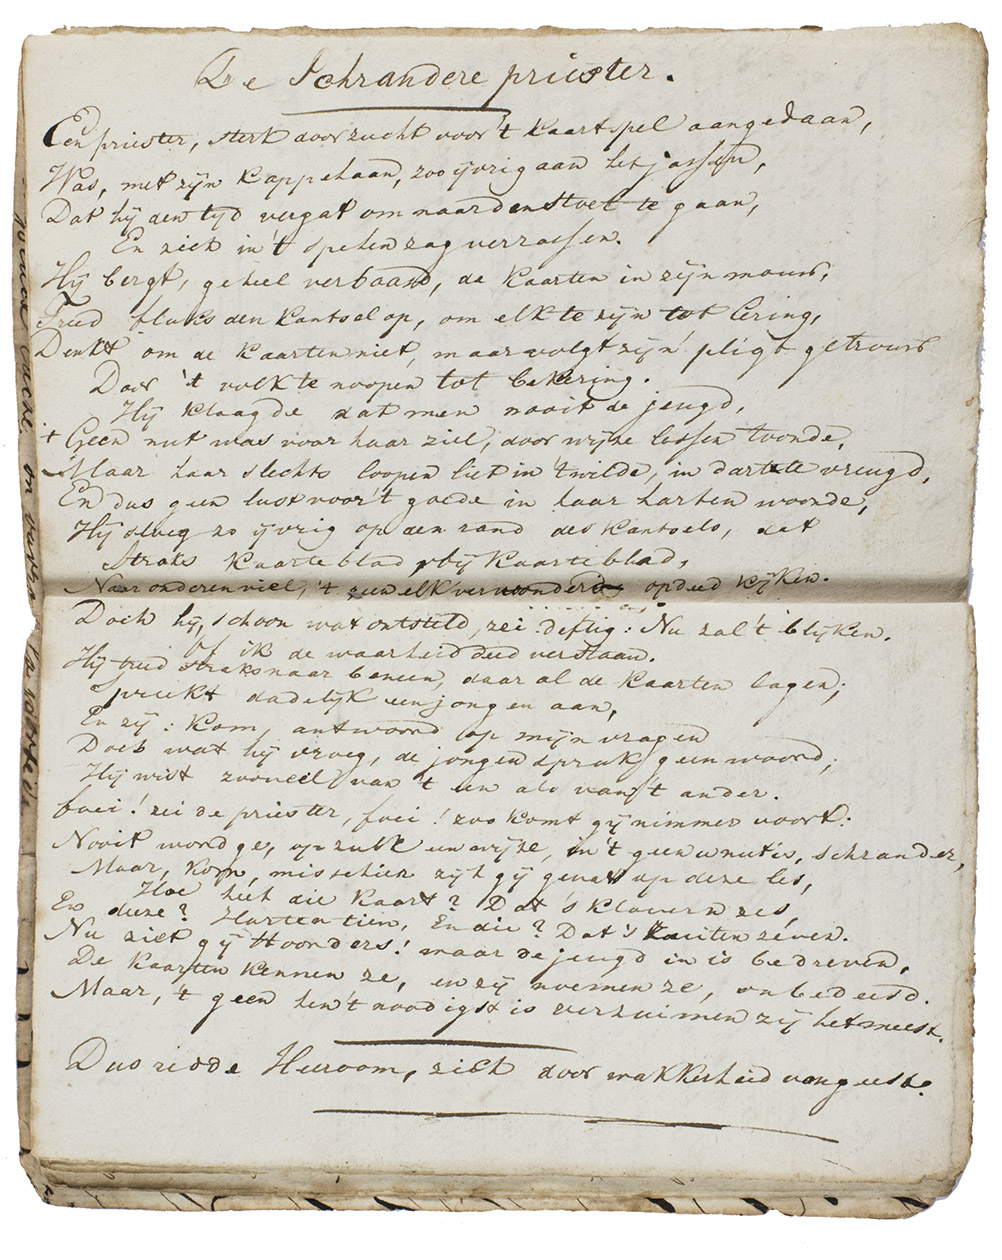 De Schrandere priester.
Een priester, sterk door zucht voor 't kaartspel aangedaan,
Was, met zijn kappelaan, zoo ijvrig aan het jassen,
Dat hij den tijd vergat om naar den stoel te gaan,
En zich in 't spelen zag verrassen.
Hij bergt, geheel verbaasd, de kaarten in zijn mouw,
Treed fluks den kantsel op, om elk te zijn tot lering,
Denkt om de kaarten niet, maar volgt zijn pligt getrouw
Door 't volk te noopen tot bekering.
Hij klaagde dat men nooit de jeugd,
't Geen nut was voor haar ziel, door wijze lessen toonde,
Maar haar slechts loopen liet in 't wilde, in dartele vreugd,
En dus geen lust voor 't goede in haar harten woonde,
Hij sloeg zo ijvrig op den rand des kantsels, dat
Straks kaarteblad bij kaarteblad,
Naar onderen viel, 't geen elk verwonderd opdeed kijken.
Doch hij, schoon wat ontsteld, zei deftig: Nu zal 't blijken.
Of ik de waarheid deed verstaan.
Hij treed straks naar beneen, daar al de kaarten lagen;
Spreekt dadelijk een jongen aan,
En zij: kom, antwoord op mijn vragen
Doch wat hij vroeg, de jongen sprak geen woord;
Hij wist zooveel van 't een als van 't ander.
foei! zei de priester, foei! zoo komt gij nimmer voort.
Nooit word ge, op zulk een wijze, in 't geen u nut is, schrander,
Maar, kom, misschien zijt gij gevat op deze les,
Hoe hiet die kaart? Dat 's klaveren zes,
En deze? Harten tien, En die? Dat 's Ruiten zéven.
Nu ziet gij Hoorders! waar de jeugd in is bedreven,
De kaarten kennen ze, en zij noemen ze, onbedeesd.
Maar, 't geen hen 't noodigst is verzuimen zij het meest.
Dus redde Heeroom, zich door wakkerheid van geest.